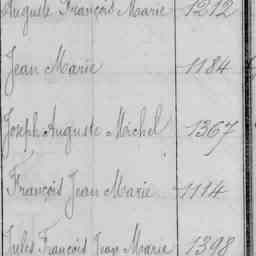 Auguste François Marie 1212
Jean Marie 1184
Joseph Auguste Michel 1367
François Jean Marie 1114
Jules François Jean Marie 1398